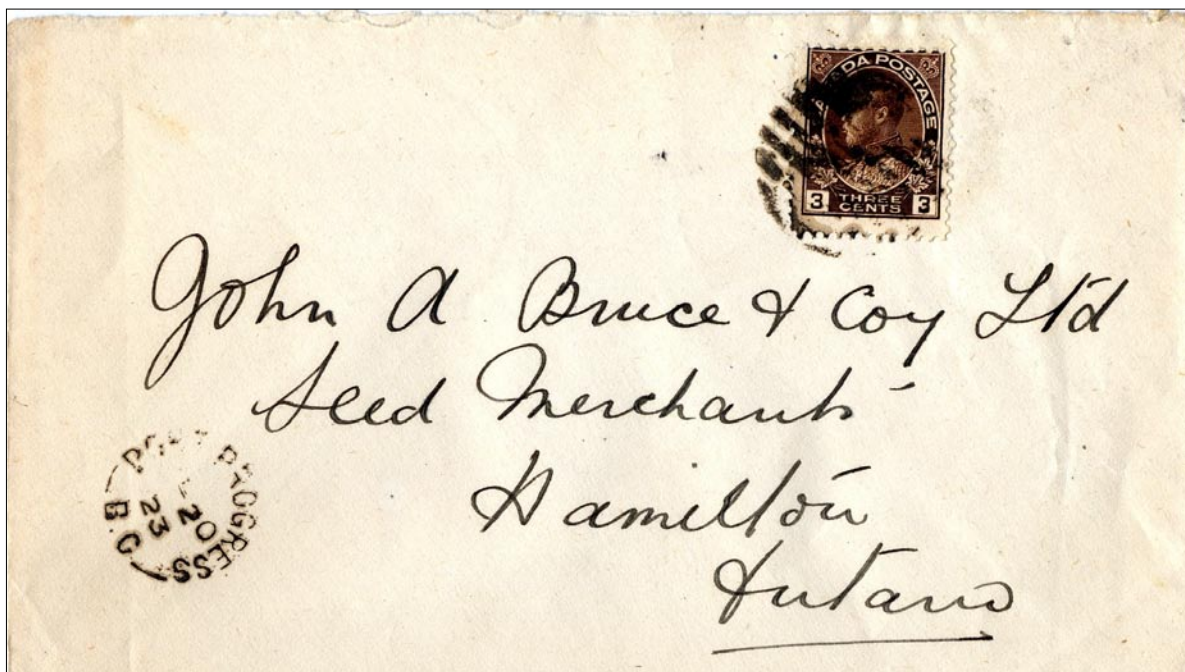 DA POSTAGE
3 THREE CENTS 3
John A Bruce & Coy Ltd
Seed Merchants
Hamilton
Ontario
PROGRESS
20
23
B.C